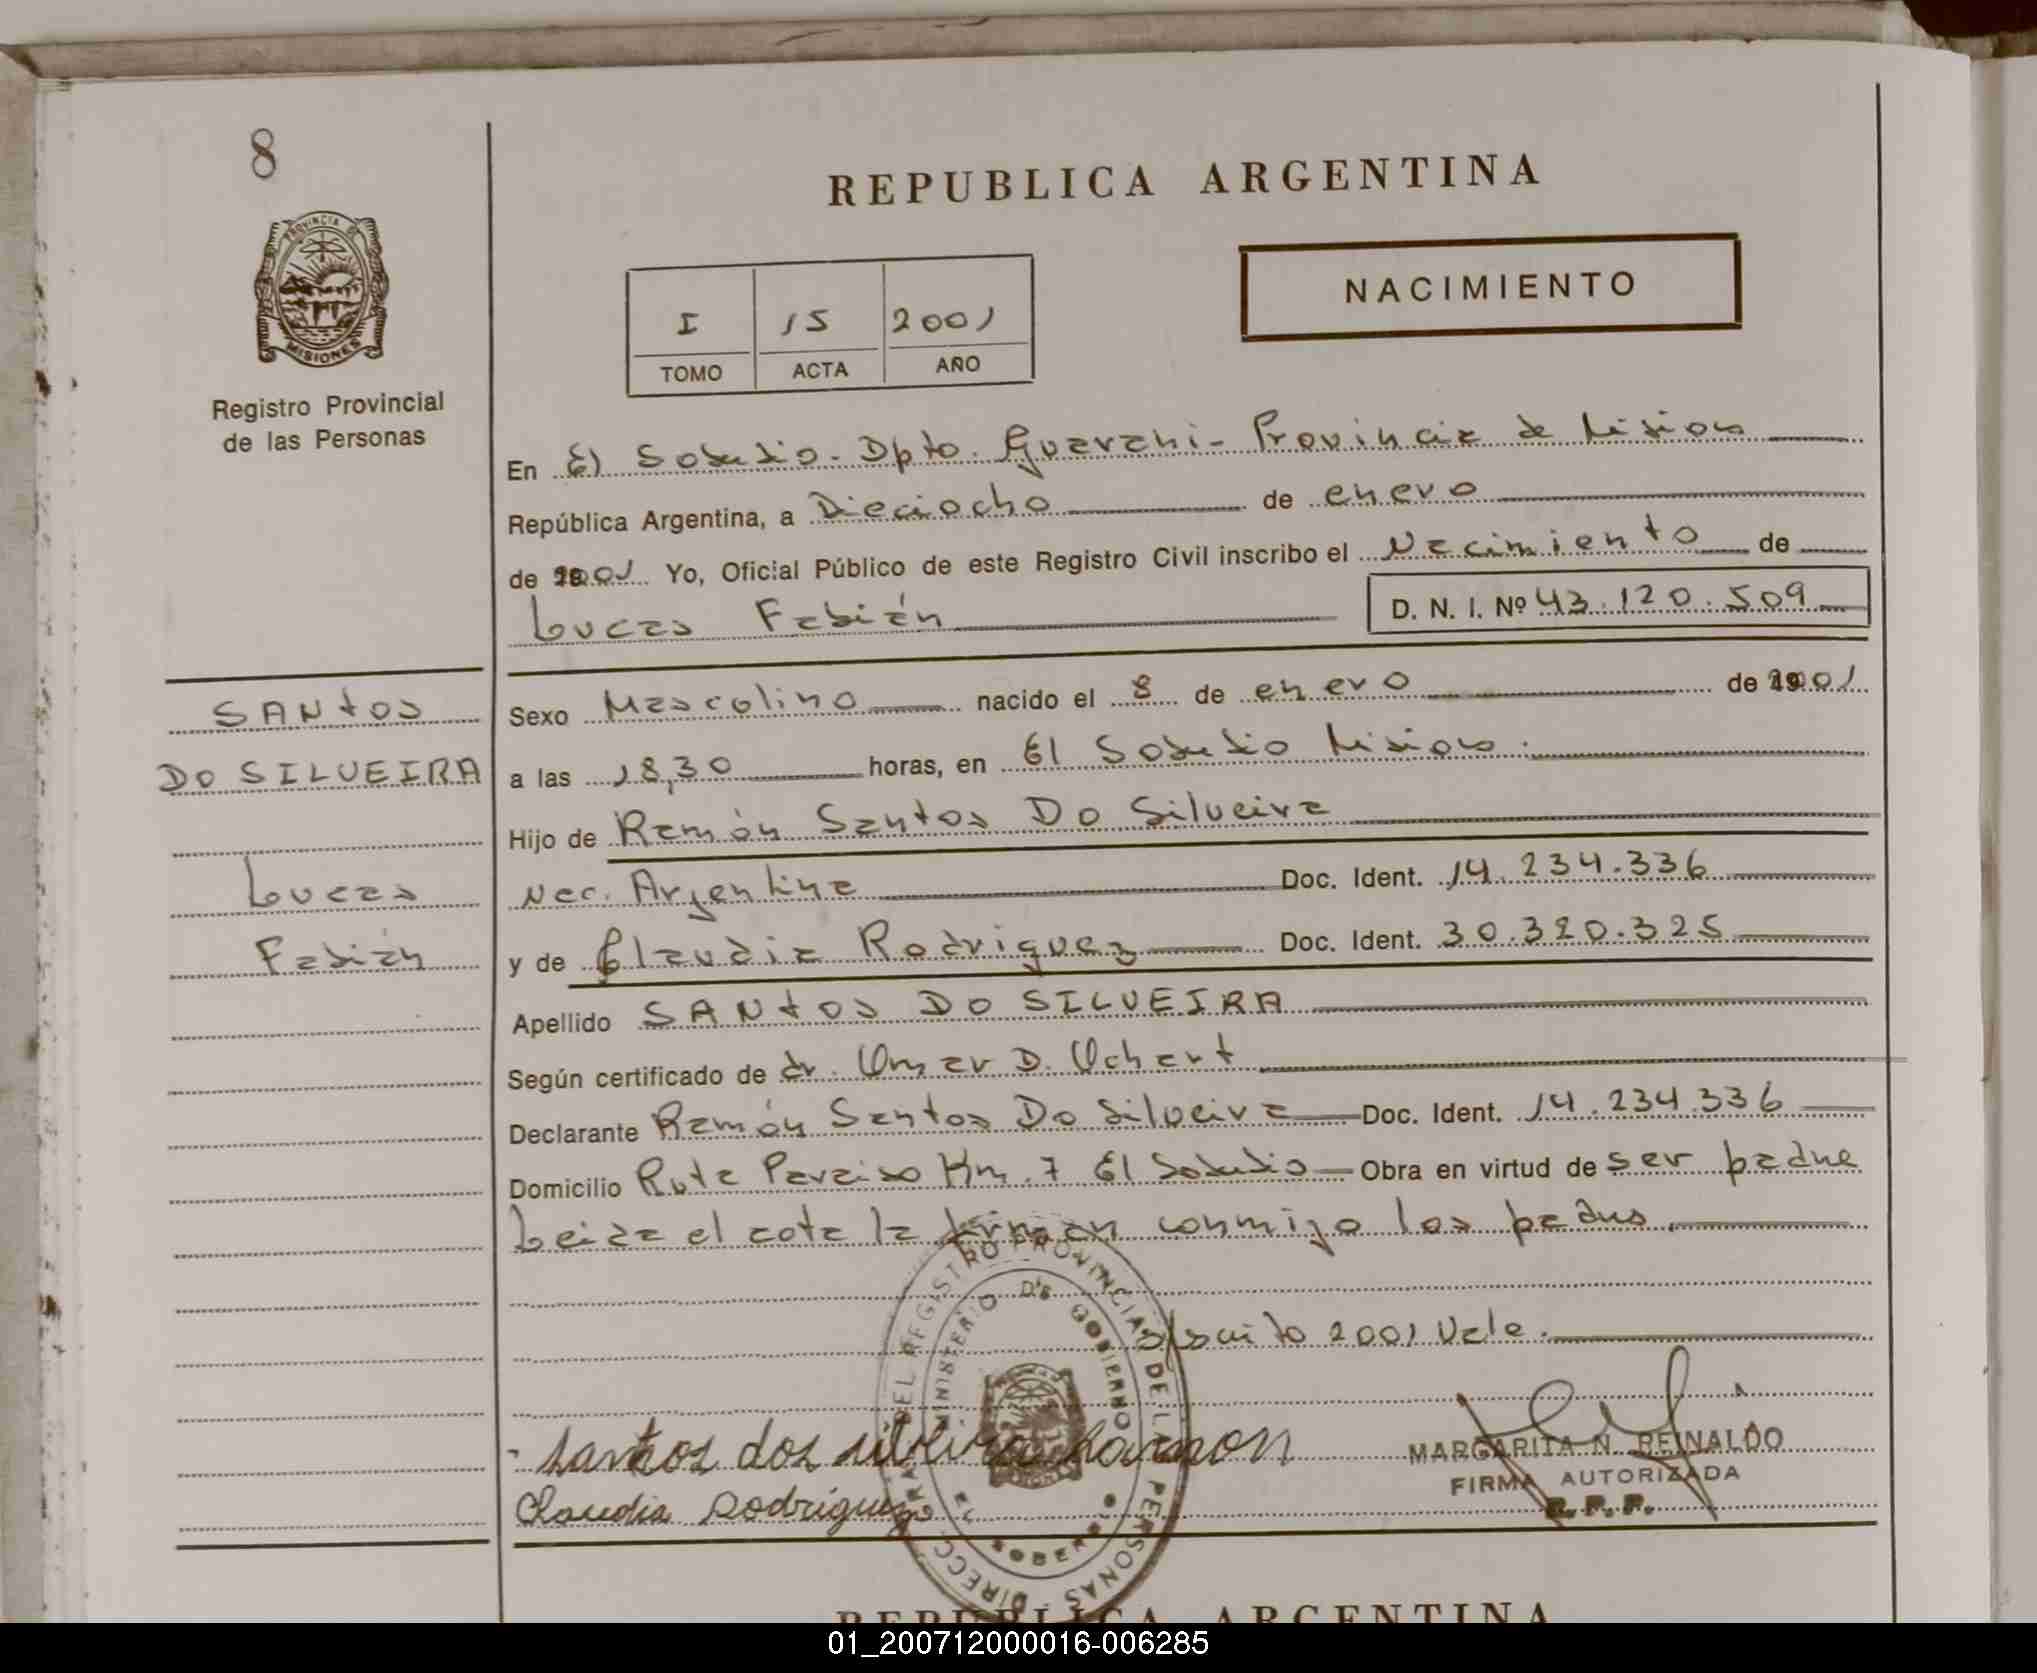 8
REPUBLICA ARGENTINA
PROVINCIA DE
MISIONES
NACIMIENTO
I 15 2001
TOMO ACTA AÑO
Registro Provincial
de las Personas
En El Soberbio. Dpto. Guarani - Provincia de Misiones
República Argentina, a Dieciocho de enero
de 2001 Yo, Oficial Público de este Registro Civil inscribo el Nacimiento de
Lucas Fabián D. N. I. Nº 43.120.509
SANTOS
DO SILVEIRA
Lucas
Fabián
Sexo Masculino nacido el 8 de enero de 2001
a las 18,30 horas, en El Soberbio Misiones.
Hijo de Ramón Santos Do Silveira
Nac. Argentina Doc. Ident. 14.234.336
y de Claudia Rodriguez Doc. Ident. 30.320.325
Apellido SANTOS DO SILVEIRA
Según certificado de dr. Omar D. Ochart
Declarante Ramón Santos Do Silveira Doc. Ident. 14.234.336
Domicilio Ruta Paraiso Km. 7 El Soberbio Obra en virtud de ser padre
Leida el acta la firman conmigo los padres.
s/scrito 2001 Vale.
santos dos silveira Ramon
Claudia Rodriguez
MARGARITA N. REINALDO
FIRMA AUTORIZADA
R.P.P.
DEL REGISTRO PROVINCIAL DE LA PERSONAS
MINISTERIO DE GOBIERNO
REPUBLICA ARGENTINA
01_200712000016-006285